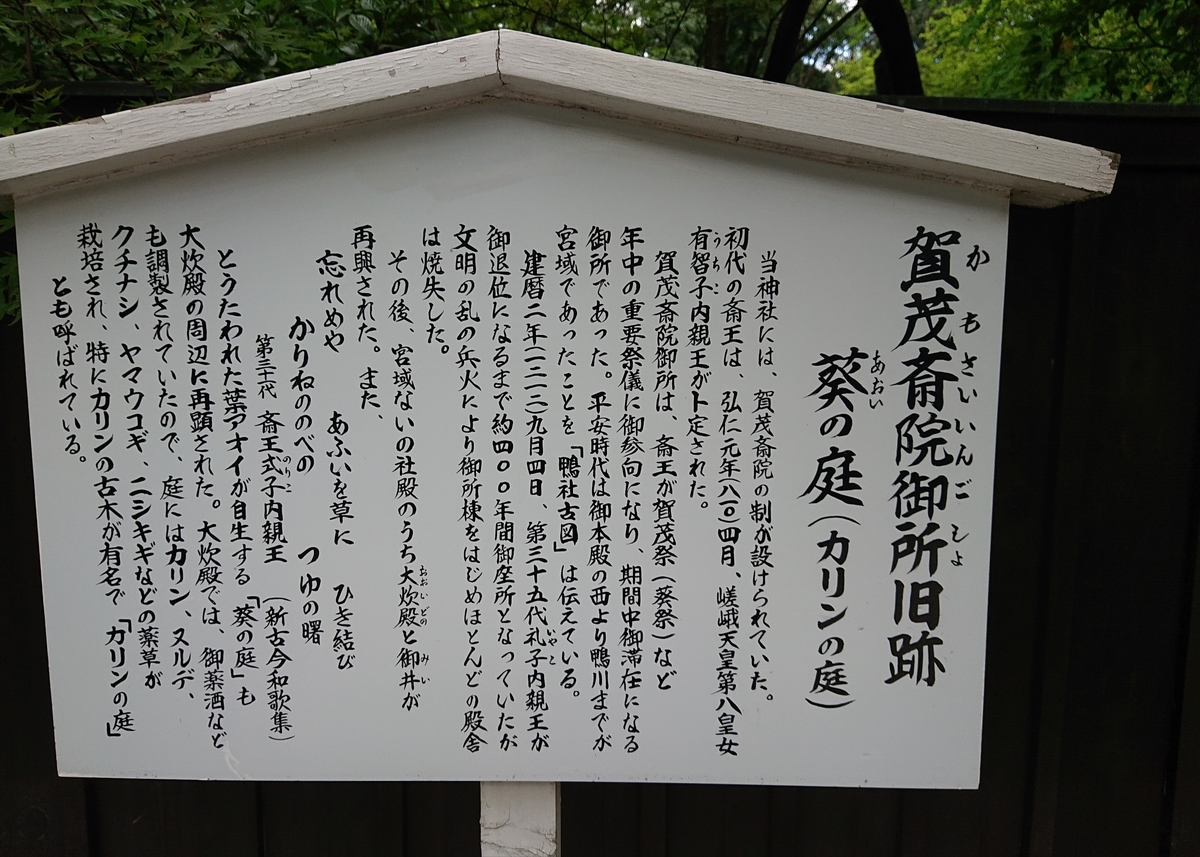 賀茂斎院御所旧跡
かもさいいんごしょ
葵の庭(カリンの庭)
あおい
当神社には、賀茂斎院の制が設けられていた。
初代の斎王は、弘仁元年(八一〇)四月、嵯峨天皇第八皇女
有智子内親王が卜定された。
うちこ
賀茂斎院御所は、斎王が賀茂祭(葵祭)など
年中の重要祭儀に御参向になり、期間中御滞在になる
御所であった。平安時代は御本殿の西より鴨川までが
宮域であったことを「鴨社古図」は伝えている。
建暦二年(一二一二)九月四日、第三十五代礼子内親王が
いやこ
御退位になるまで約四〇〇年間御座所となっていたが
文明の乱の兵火により御所棟をはじめほとんどの殿舎
は焼失した。
その後、宮域ないの社殿のうち大炊殿と御井が
おおいどの
みい
再興された。また、
忘れめや あふいを草に ひき結び
かりねののべの つゆの曙
第三十代 斎王式子内親王 (新古今和歌集)
のりこ
とうたわれた葉アオイが自生する「葵の庭」も
大炊殿の周辺に再顕された。大炊殿では、御薬酒など
も調製されていたので、庭にはカリン、ヌルデ、
クチナシ、ヤマウコギ、ニシキギなどの薬草が
栽培され、特にカリンの古木が有名で「カリンの庭」
とも呼ばれている。